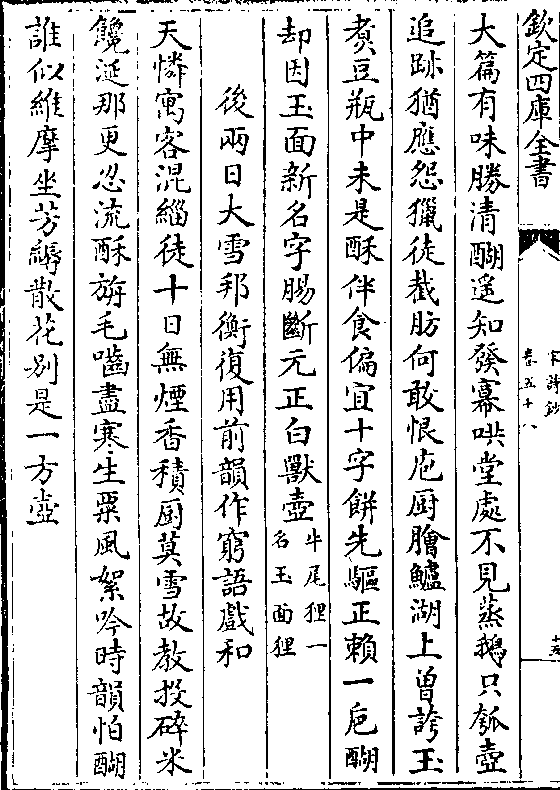 欽定四庫全書
宋詩鈔
卷五十八
十五
大篇有味勝清醐遥知發幕哄堂處不見蒸鵝只瓠壺
追跡猶應怨獵徒截肪何敢恨庖厨膾鱸湖上曽誇玉
煑豆瓶中未是酥伴食偏宜十字餅先驅正賴一巵醐
却因玉面新名字腸斷元正白獸壺牛尾狸一名玉面狸
後兩日大雪邦衡復用前韻作窮語戲和
天憐寓客混緇徒十日無煙香積厨莫雪故教投碎米
饞涎那更忍流酥旃毛嚙盡寒生粟風絮吟時韻怕醐
誰似維摩坐芳縟散花别是一方壺